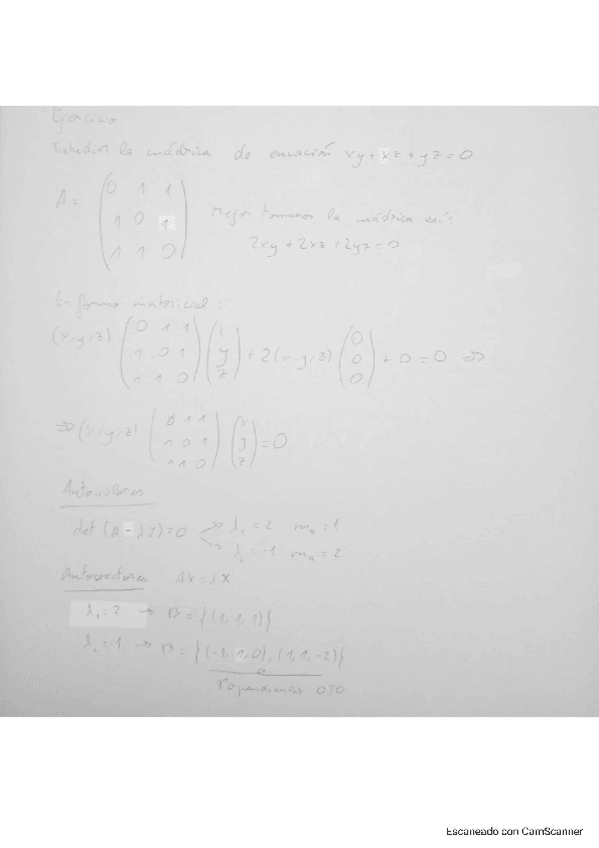 Ejercicio
Estudiar la cuádrica de ecuación xy + xz + yz = 0
A = (0 1 1
1 0 1
1 1 0)
Mejor tomamos la cuádrica así:
2xy + 2xz + 2yz = 0
En forma matricial:
(x, y, z) (0 1 1 / 1 0 1 / 1 1 0) (x / y / z) + 2(x, y, z) (0 / 0 / 0) + 0 = 0 ⇒
⇒ (x, y, z) (0 1 1 / 1 0 1 / 1 1 0) (x / y / z) = 0
Autovalores
det (A - λI) = 0 → λ₁ = 2 mₐ = 1
→ λ₂ = -1 mₐ = 2
Autovectores AX = λX
λ₁ = 2 → B = {(1, 1, 1)}
λ₂ = -1 → B = {(-1, 1, 0), (1, 1, -2)}
OJO
Escaneado con CamScanner